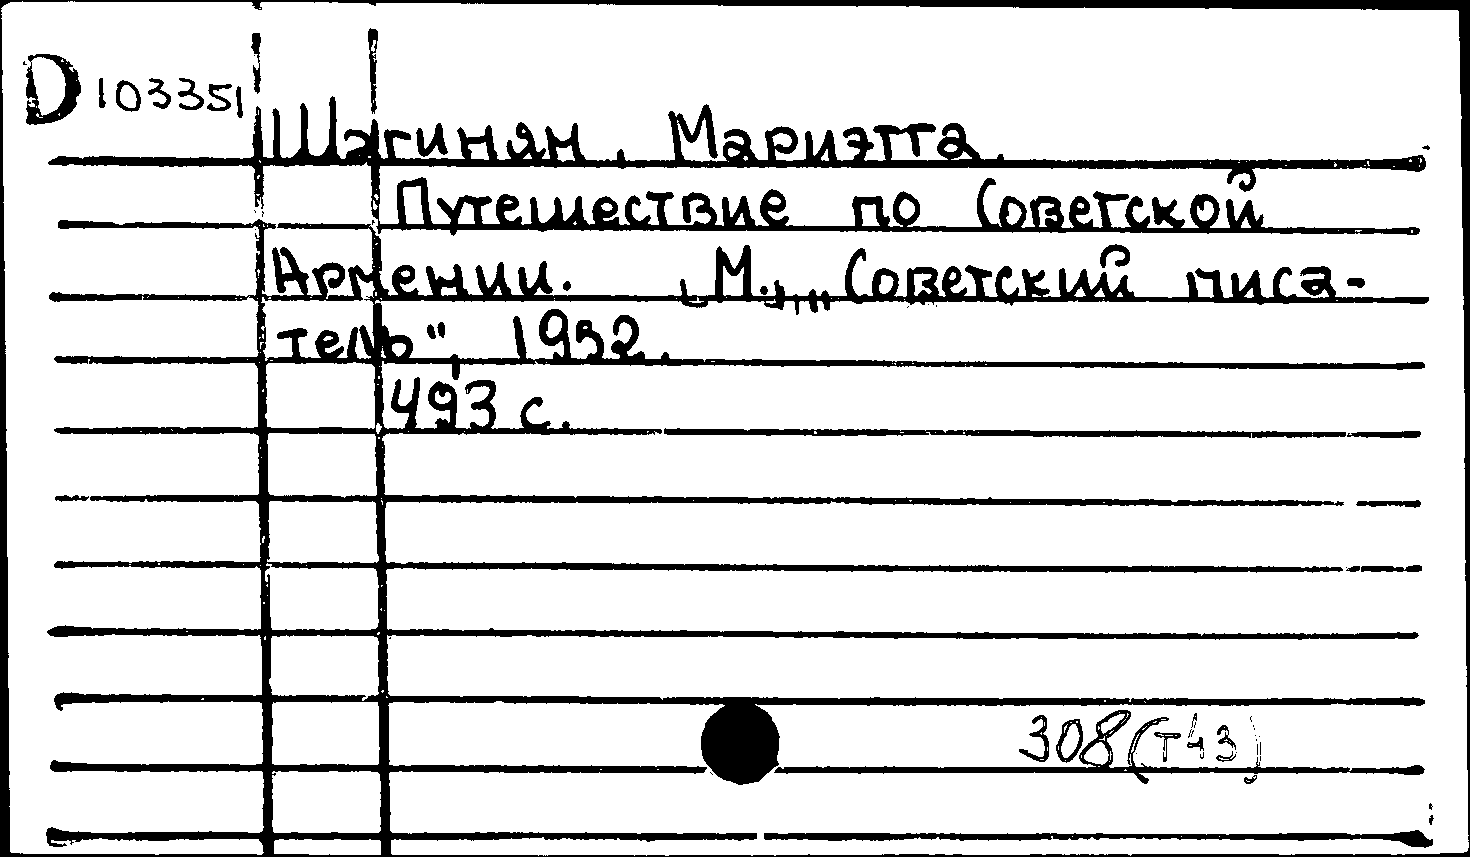 D 103351
Шагинян, Мариэтта.
Путешествие по Советской
Армении. [М.], „Советский писа-
тель", 1952.
493 с.
308(Т43)